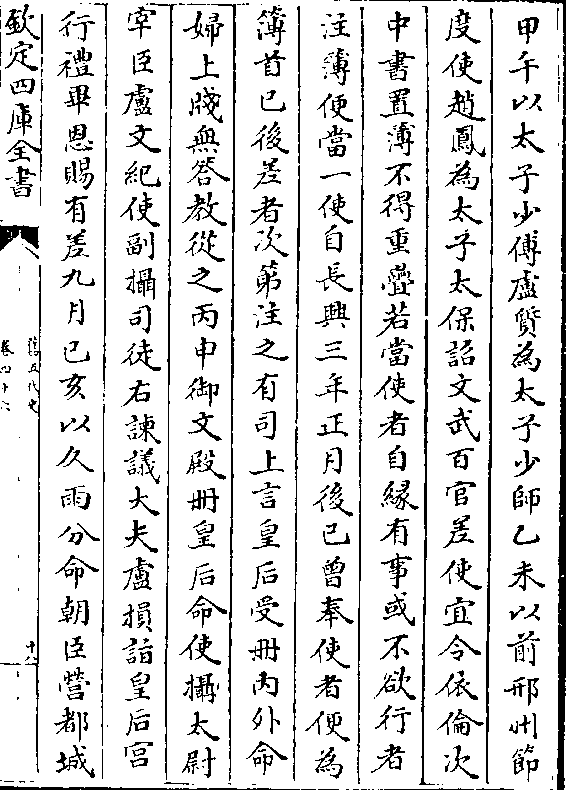 甲午以太子少傅盧質為太子少師乙未以前邢州節
度使趙鳳為太子太保詔文武百官差使宜令依倫次
中書置簿不得重疊若當使者自緣有事或不欲行者
注簿便當一使自長興三年正月後已曾奉使者便為
簿首已後差者次第注之有司上言皇后受冊內外命
婦上牋無答教從之丙申御文殿冊皇后命使攝太尉
宰臣盧文紀使副攝司徒右諫議大夫盧損詣皇后宮
行禮畢恩賜有差九月己亥以久雨分命朝臣禜都城
欽定四庫全書
舊五代史
卷四十六
十八